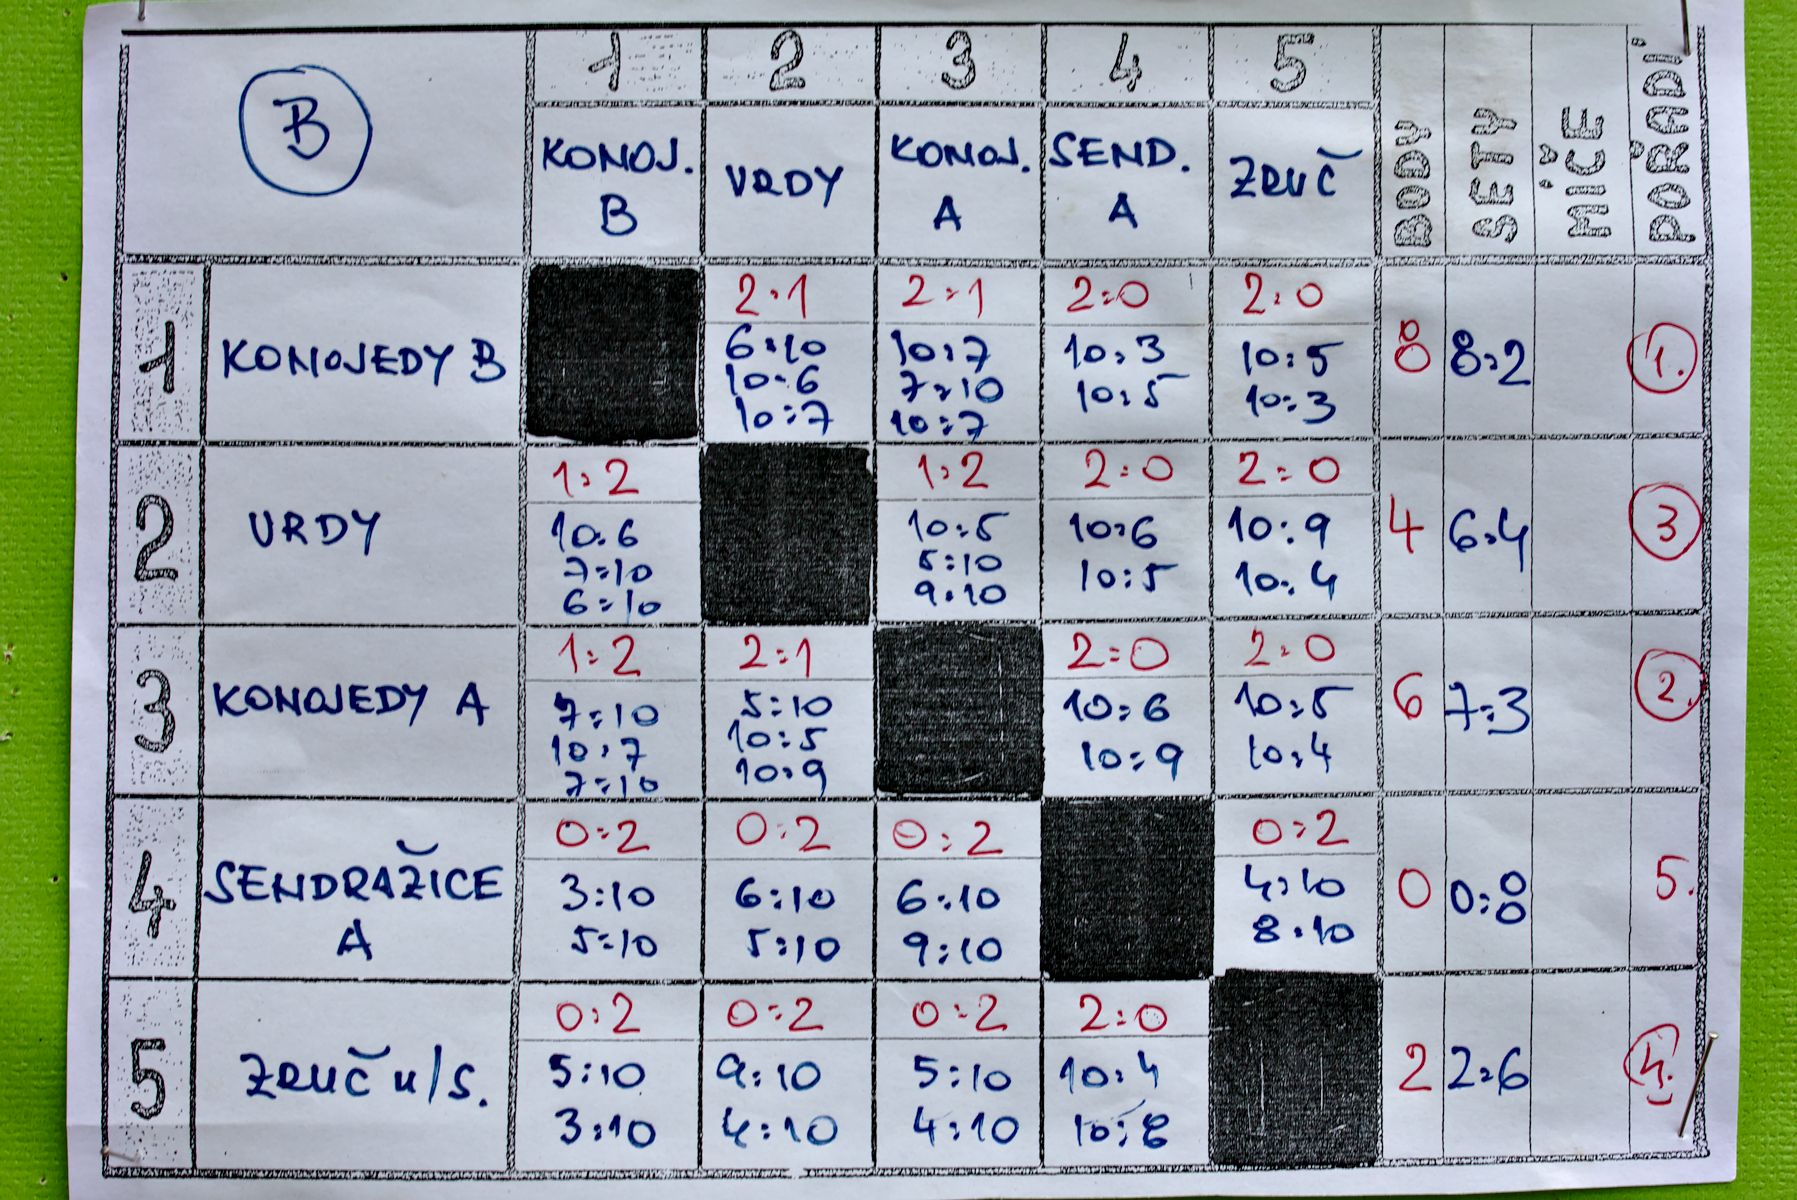 B
1 2 3 4 5
KONOJ. B VRDY KONOJ. A SEND. A ZRUČ BODY SETY MÍČE POŘADÍ
1 KONOJEDY B 2:1 2:1 2:0 2:0 8 8:2 1.
6:10 10:7 10:3 10:5
10:6 7:10 10:5 10:3
10:7 10:7
2 VRDY 1:2 1:2 2:0 2:0 4 6:4 3
10:6 10:5 10:6 10:9
7:10 5:10 10:5 10:4
6:10 9:10
3 KONOJEDY A 1:2 2:1 2:0 2:0 6 7:3 2.
7:10 5:10 10:6 10:5
10:7 10:5 10:9 10:4
7:10 10:9
4 SENDRAŽICE A 0:2 0:2 0:2 0:2 0 0:8 5.
3:10 6:10 6:10 4:10
5:10 5:10 9:10 8:10
5 ZRUČ n/S. 0:2 0:2 0:2 2:0 2 2:6 4.
5:10 9:10 5:10 10:4
3:10 4:10 4:10 10:8